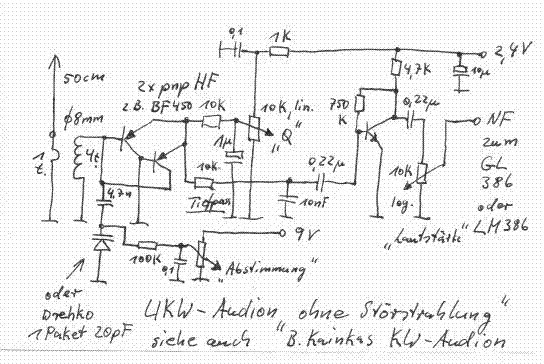 0,1
1K
2,4V
50cm
2x pnp HF
z.B. BF450
10K
10K, lin.
"Q"
1µ
750
K
4,7K
10µ
0,22µ
NF
zum
GL
386
oder
LM386
ϕ8mm
1
t.
4t.
10K
Tiefpass
0,22µ
10nF
10K
log.
"Lautstärke"
4,7n
100K
0,1
9V
"Abstimmung"
oder
Drehko
1 Paket 20pF
4KW-Audion "ohne Störstrahlung"
siehe auch "B. Kainkas KW-Audion